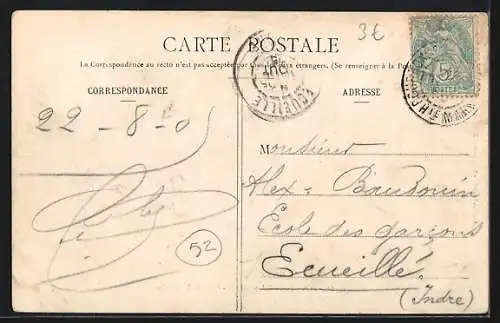 3€
CARTE POSTALE
La Correspondance au recto n'est pas acceptée par tous les pays étrangers. (Se renseigner à la Poste
CORRESPONDANCE
ADRESSE
22-8-0
Monsieur
Alex. Baudouin
Ecole des garçons
Ecueillé
(Indre)
52
5
ECUEILLE